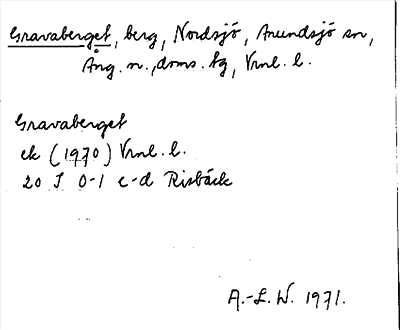 Gravaberget, berg, Nordsjö, Anundsjö sn,
Ång. n., doms. tg, Vrnl. l.
Gravaberget
ek (1970) Vrnl. l.
20 I 0-1 c-d Risbäck
A.-L. W. 1971.